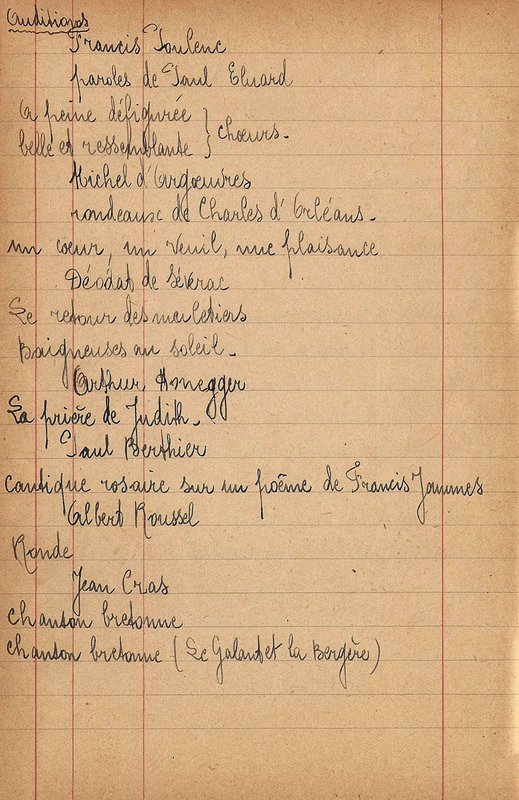 Auditions
Francis Poulenc
paroles de Paul Eluard
A peine défigurée
belle et ressemblante } chœurs.
Michel d'Argœuvres
rondeaux de Charles d'Orléans.
un cœur, un veuil, une plaisance
Déodat de Séverac
Le retour des muletiers
Baigneuses au soleil.
Arthur Honegger
La prière de Judith.
Paul Berthier
Cantique rosaire sur un poême de Francis Jammes
Albert Roussel
Ronde
Jean Cras
chanson bretonne
chanson bretonne (Le Galant et la Bergère)